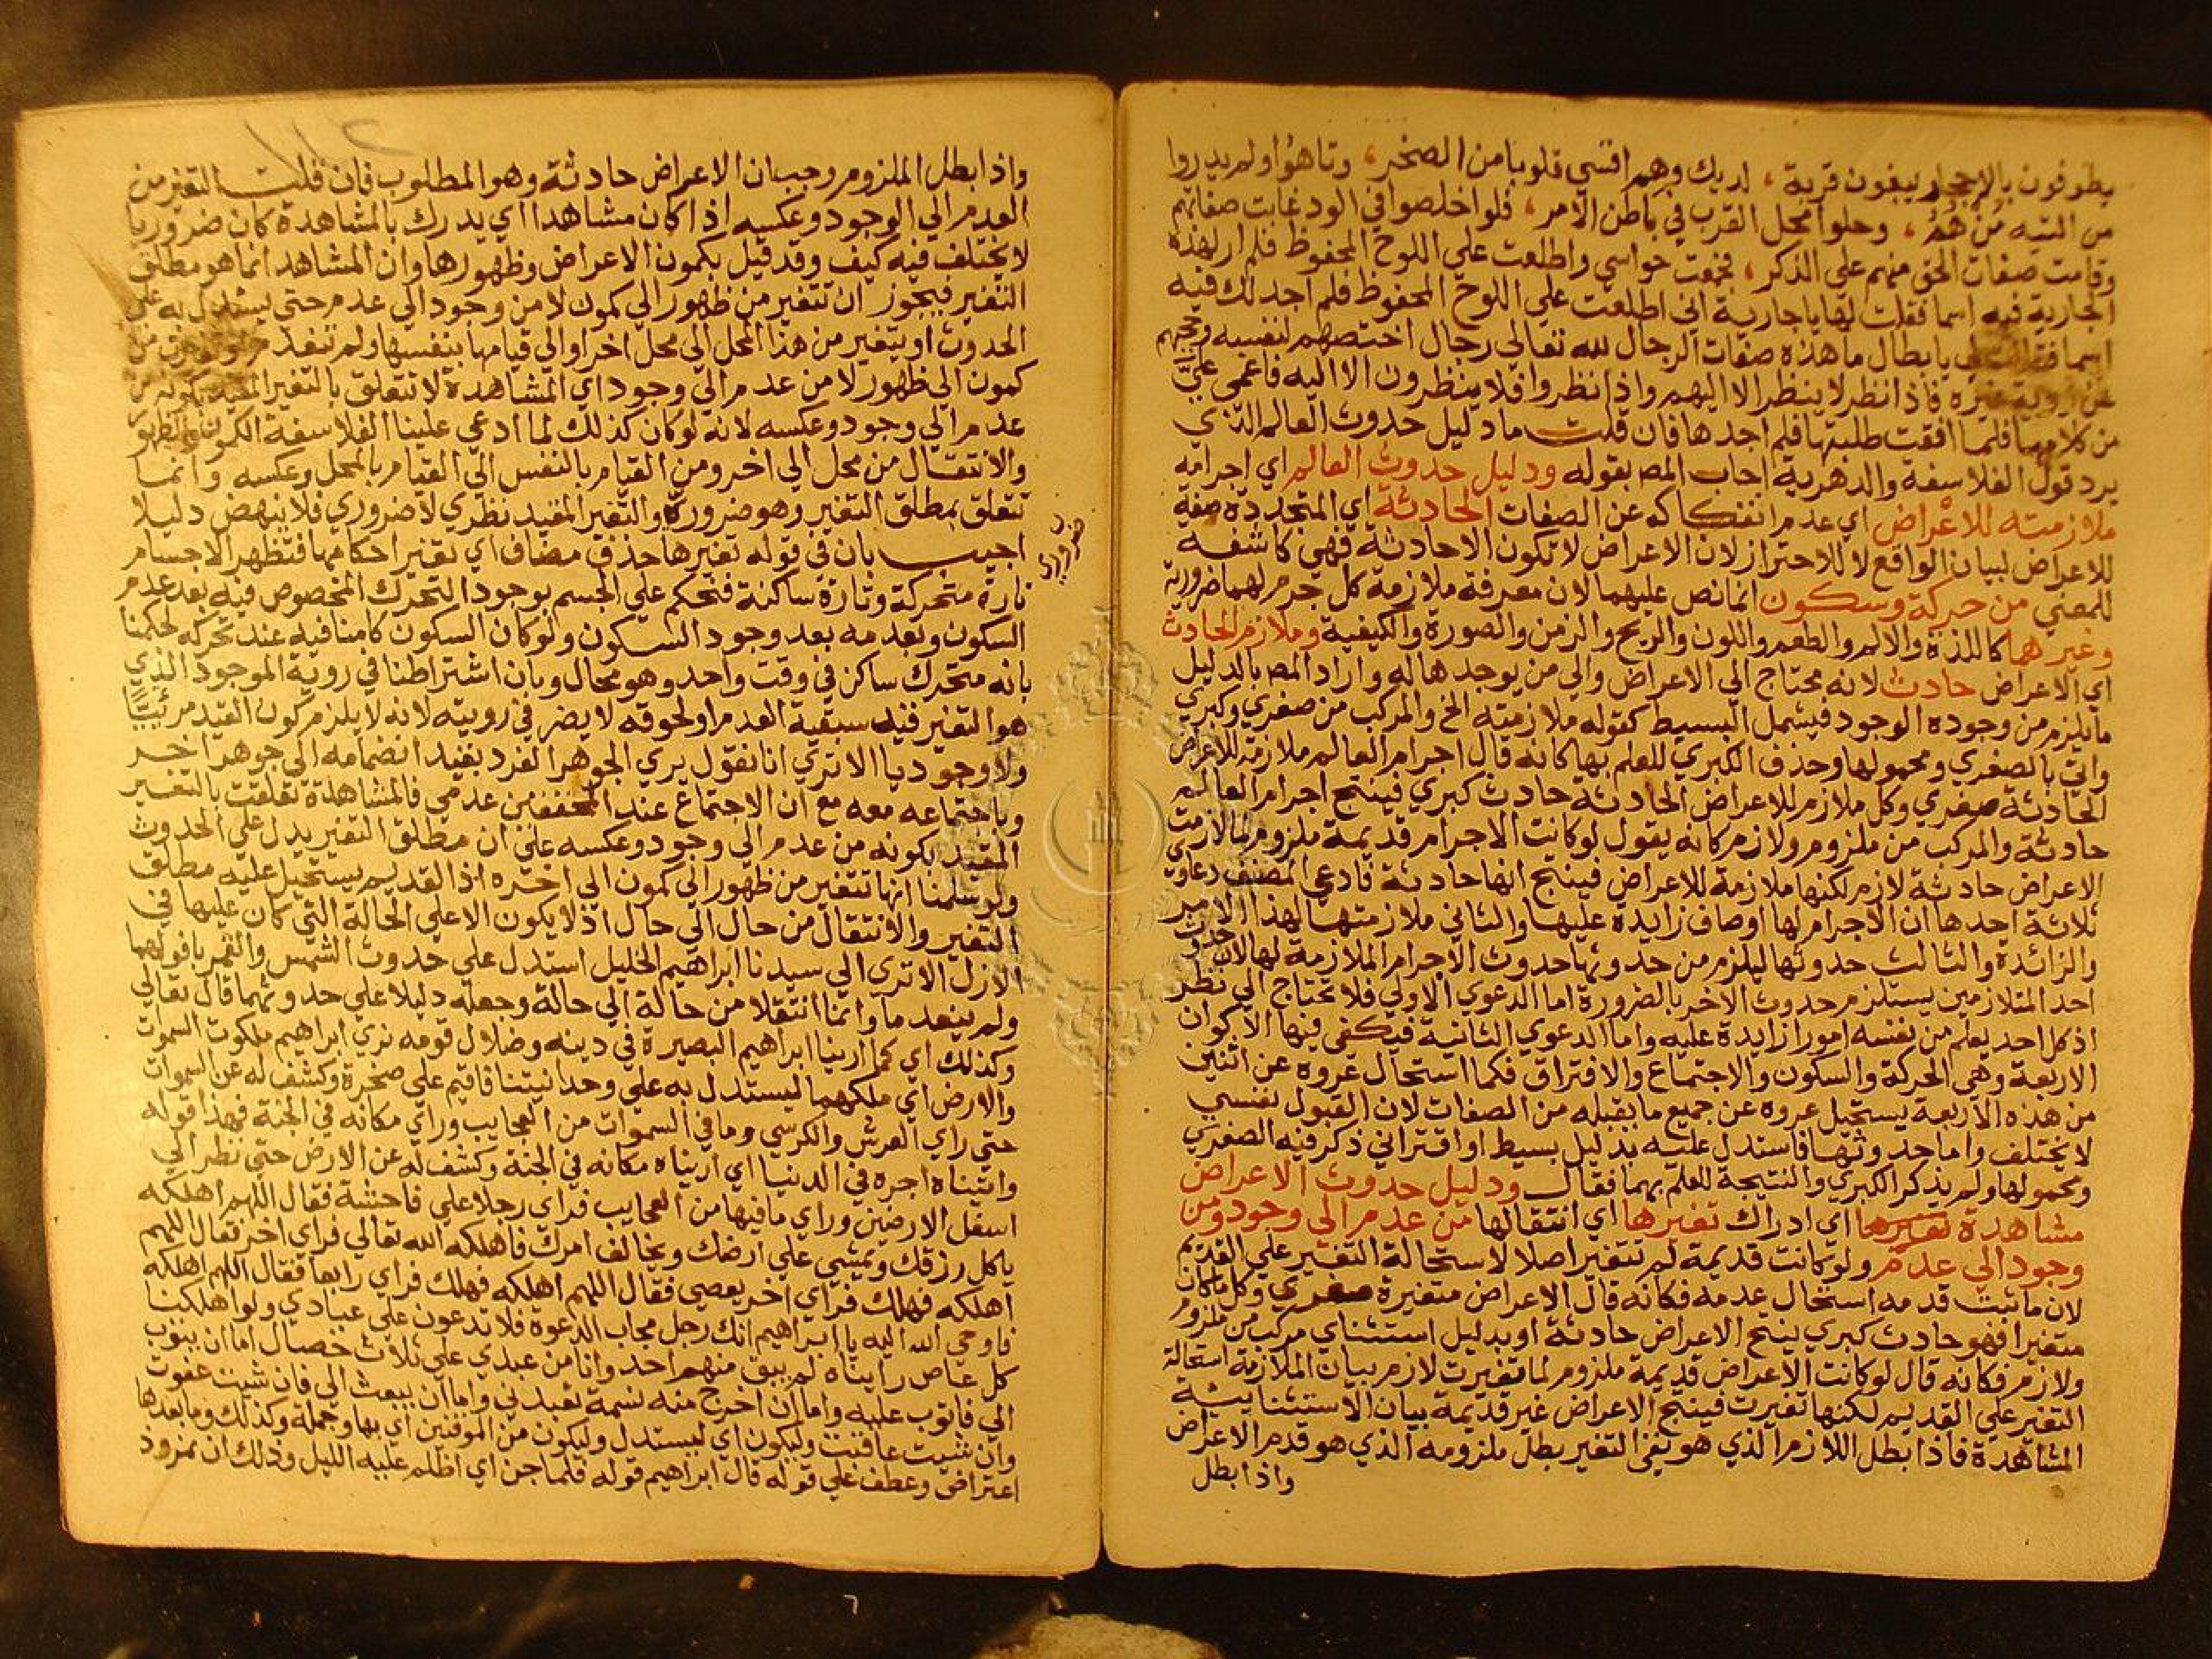 يطوفون بالاحجار يبغون قربة ، اليك وهم اقسي قلوبا من الصخر ، وتاهوا ولم يدروا
من التيه من هم ، وحلوا محل القرب في باطن الامر ، فلو اخلصوا في الود غابت صفاتهم
وقامت صفات الحق منهم على الذكر ، فجمعت حواسي واطلعت على اللوح المحفوظ فلم ار لهذه
الجارية فيه اسما فقلت لها يا جارية اني اطلعت على اللوح المحفوظ فلم اجد لك فيه
اسما فقالت لي يا بطال ما هذه صفات الرجال لله تعالى رجال اختصهم لنفسه وحجبهم
عن روية غيره فاذا نظر لا ينظر الا اليهم واذا نظروا فلا ينظرون الا اليه فاغمي عليّ
من كلامها فلما افقت طلبتها فلم اجدها فان قلت ما دليل حدوث العالم الذي
يرد قول الفلاسفة والدهرية اجاب المص بقوله ودليل حدوث العالم اي اجرامه
ملازمته للاعراض اي عدم انفكاكه عن الصفات الحادثة اي المتجددة صفة
للاعراض لبيان الواقع لا للاحتراز لان الاعراض لا تكون الا حادثة فهي كاشفة
للمعني من حركة وسكون انما نص عليهما لان معرفة ملازمة كل جرم لهما ضرورية
وغيرهما كاللذة والالم والطعم واللون والريح والزمن والصورة والكيفية وملازم الحادث
اي الاعراض حادث لانه محتاج الي الاعراض والي من يوجدها له واراد المص بالدليل
ما يلزم من وجوده الوجود فيشمل البسيط كقوله ملازمته الخ والمركب من صغري وكبري
واتي بالصغري ومحمولها وحذف الكبري للعلم بها كانه قال اجرام العالم ملازمة للاعراض
الحادثة صغري وكل ملازم للاعراض الحادثة حادث كبري فينتج اجرام العالم
حادثة والمركب من ملزوم ولازم كانه يقول لو كانت الاجرام قديمة ملزوم لما لازمت
الاعراض حادثة لازم لكنها ملازمة للاعراض فينتج انها حادثة فادعي المصنف دعاوي
ثلاثة احدها ان الاجرام لها اوصاف زايدة عليها والثاني ملازمتها لهذا الامر
والزائدة والثالث حدوثها ليلزم من حدوثها حدوث الاجرام الملازمة لها لان حدوث
احد المتلازمين يستلزم حدوث الاخر بالضرورة اما الدعوي الاولي فلا تحتاج الي نظر
اذ كل احد يعلم من نفسه امورا زايدة عليه واما الدعوي الثانية فيكفي فيها الاكوان
الاربعة وهي الحركة والسكون والاجتماع والافتراق فكما استحال عروه عن اثنين
من هذه الاربعة يستحيل عروه عن جميع ما يقبله من الصفات لان القبول نفسي
لا يختلف واما حدوثها فاستدل عليه بدليل بسيط او اقتراني ذكر فيه الصغري
ومحمولها ولم يذكر الكبري والنتيجة للعلم بهما فقال ودليل حدوث الاعراض
مشاهدة تغيرها اي ادراك تغيرها اي انتقالها من عدم الى وجود ومن
وجود الي عدم ولو كانت قديمة لم تتغير اصلا لاستحالة التغير علي القديم
لان ما ثبت قدمه استحال عدمه فكانه قال الاعراض متغيرة صغري وكل ما كان
متغيرا فهو حادث كبري ينتج الاعراض حادثة او بدليل استثناي مركب من ملزوم
ولازم فكانه قال لو كانت الاعراض قديمة ملزوم لما تغيرت لازم بيان الملازمة استحالة
التغير علي القديم لكنها تغيرت فينتج الاعراض غير قديمة بيان الاستثنائية
المشاهدة فاذا بطل اللازم الذي هو نفي التغير بطل ملزومه الذي هو قدم الاعراض
واذا بطل
واذا بطل الملزوم وجب ان الاعراض حادثة وهو المطلوب فان قلت التغير من
العدم الي الوجود وعكسه اذا كان مشاهدا اي يدرك بالمشاهدة كان ضروريا
لا يختلف فيه كيف وقد قيل بكمون الاعراض وظهورها وان المشاهد انما هو مطلق
التغير فيجوز ان تتغير من ظهور الي كمون لا من وجود الي عدم حتى يستدل به علي
الحدوث او يتغير من هذا المحل الي محل اخر او الي قيامها بنفسها ولم تنعدم او من
كمون الى ظهور لا من عدم الي وجود اي المشاهدة لا تتعلق بالتغير المقيد بكونه من
عدم الي وجود وعكسه لانه لو كان كذلك لما ادعي علينا الفلاسفة الكمون والظهور
والانتقال من محل الي اخر ومن القيام بالنفس الي القيام بالمحل وعكسه وانما
تتعلق بمطلق التغير وهو ضرورة والتغير المفيد نظري لا ضروري فلا ينهض دليلا
ضروري
اجيب بان في قوله تغيرها حذف مضاف اي تغير احكامها فتظهر الاجسام
تارة متحركة وتارة ساكنة فتحكم علي الجسم بوجود التحرك المخصوص فيه بعد عدم
السكون وبعدمه بعد وجود السكون ولو كان السكون كامنا فيه عند تحركه لحكمنا
بانه متحرك ساكن في وقت واحد وهو محال وبان اشتراطنا في روية الموجود الذي
هو التغير فيه سبقية العدم او لحوقه لا يضر في رويته لانه لا يلزم كون القيد مرئيا
ولا وجوديا الا تري انا نقول يري الجوهر الفرد بقيد انضمامه الي جوهر اخر
وباجتماعه معه مع ان الاجتماع عند المحققين عدمي فالمشاهدة تعلقت بالتغير
المقيد بكونه من عدم الي وجود وعكسه علي ان مطلق التغير يدل علي الحدوث
ولو سلمنا انها تتغير من ظهور الي كمون الي اخره اذ القديم يستحيل عليه مطلق
التغير والانتقال من حال الي حال اذ لا يكون الا علي الحالة التي كان عليها في
الازل الا تري الي سيدنا ابراهيم الخليل استدل علي حدوث الشمس والقمر بافولهما
ولم ينعدما وانما انتقلا من حالة الي حالة وجعله دليلا علي حدوثهما قال تعالي
وكذلك اي كما ارينا ابراهيم البصيرة في دينه وضلال قومه نري ابراهيم ملكوت السموات
والارض اي ملكهما ليستدل به علي وحدانيتنا فاقيم علي صخرة وكشف له عن السموات
حتي راي العرش والكرسي وما في السموات من العجايب وراي مكانه في الجنة فهذا قوله
واتيناه اجره في الدنيا اي اريناه مكانه في الجنة وكشف له عن الارض حتي نظر الي
اسفل الارضين وراي ما فيها من العجايب فراي رجلا علي فاحشة فقال اللهم اهلكه
ياكل رزقك ويمشي علي ارضك ويخالف امرك فاهلكه الله تعالي فراي اخر فقال اللهم
اهلكه فهلك فراي اخر يعصي فقال اللهم اهلكه فهلك فراي رابعا فقال اللهم اهلكه
فاوحي الله اليه يا ابراهيم انك رجل مجاب الدعوة فلا تدعون علي عبادي ولو اهلكنا
كل عاص رايناه لم يبق منهم احد وانا من عبدي علي ثلاث خصال اما ان يتوب
الي فاتوب عليه واما ان اخرج منه نسمة تعبدني واما ان يبعث الي فان شيت عفوت
وان شيت عاقبت وليكون اي ليستدل وليكون من الموقنين اي بها وجملة وكذلك وما بعدها
اعتراض وعطف علي قوله قال ابراهيم قوله فلما جن اي اظلم عليه الليل وذلك ان نمرود